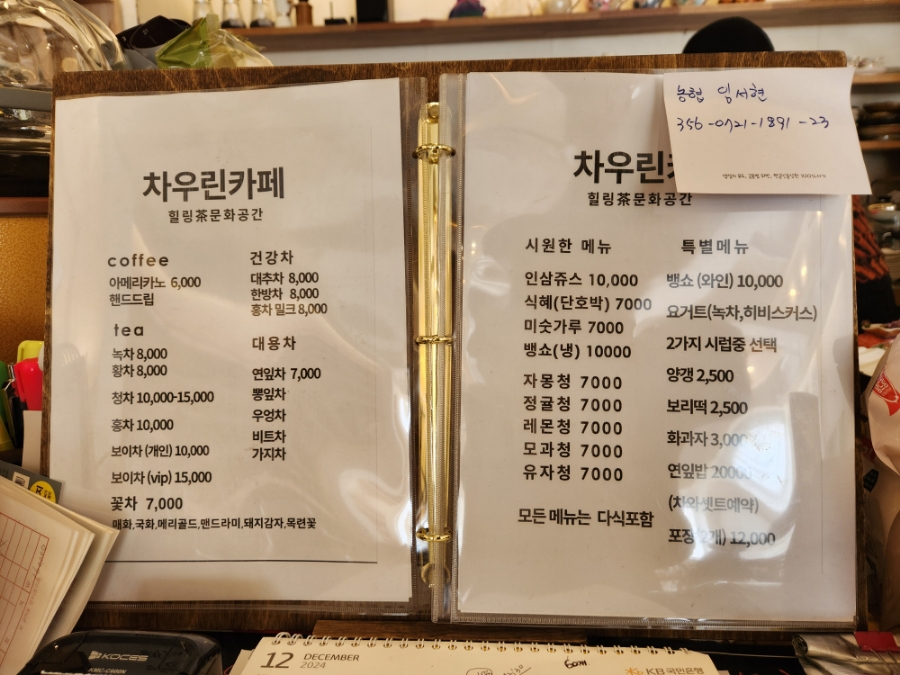 차우린카페
힐링茶문화공간
coffee
아메리카노 6,000
핸드드립
tea
녹차 8,000
황차 8,000
청차 10,000-15,000
홍차 10,000
보이차 (개인) 10,000
보이차 (vip) 15,000
꽃차 7,000
매화,국화,메리골드,맨드라미,돼지감자,목련꽃
건강차
대추차 8,000
한방차 8,000
홍차 밀크 8,000
대용차
연잎차 7,000
뽕잎차
우엉차
비트차
가지차
농협 임서현
차우린
힐링茶문화공간
시원한 메뉴
인삼쥬스 10,000
식혜(단호박) 7000
미숫가루 7000
뱅쇼(냉) 10000
자몽청 7000
정귤청 7000
레몬청 7000
모과청 7000
유자청 7000
모든메뉴는 다식포함
특별메뉴
뱅쇼 (와인) 10,000
요거트(녹차,히비스커스)
2가지 시럽중 선택
양갱 2,500
보리떡 2,500
화과자 3,000
연잎밥 20000
(차와셋트예약)
포장(2개) 12,000
KOCES
12 DECEMBER
2024
KB국민은행